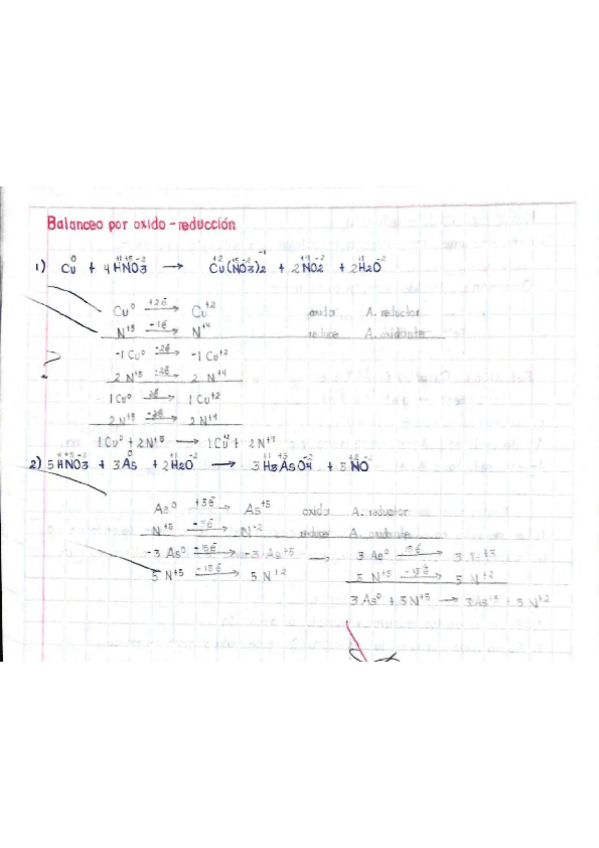 Balanceo por oxido-reducción
1) Cu⁰ + 4 H⁺¹N⁺⁵O₃⁻² → Cu⁺²(N⁺⁵O₃⁻²)₂⁻¹ + 2 N⁺⁴O₂⁻² + 2 H₂⁺¹O⁻²
Cu⁰ +2ē → Cu⁺² oxida A. reductor
N⁺⁵ -1ē → N⁺⁴ reduce A. oxidante
-1 Cu⁰ -2ē → -1 Cu⁺²
?
2 N⁺⁵ -2ē → 2 N⁺⁴
1 Cu⁰ 2ē → 1 Cu⁺²
2 N⁺⁵ -2ē → 2 N⁺⁴
1 Cu⁰ + 2 N⁺⁵ → 1 Cu⁺² + 2 N⁺⁴
2) 5 H⁺¹N⁺⁵O₃⁻² + 3 As⁰ + 2 H₂⁺¹O⁻² → 3 H₃⁺¹As⁺⁵O₄⁻² + 5 N⁺²O⁻²
As⁰ +5ē → As⁺⁵ oxida A. reductor
N⁺⁵ → N⁺² reduce A. oxidante
-3 As⁰ -15ē → -3 As⁺⁵ → 3 As⁰ 15ē →
5 N⁺⁵ -15ē → 5 N⁺² 5 N⁺⁵ -15ē → 5 N⁺²
3 As⁰ + 5 N⁺⁵ → 3 As⁺⁵ + 5 N⁺²